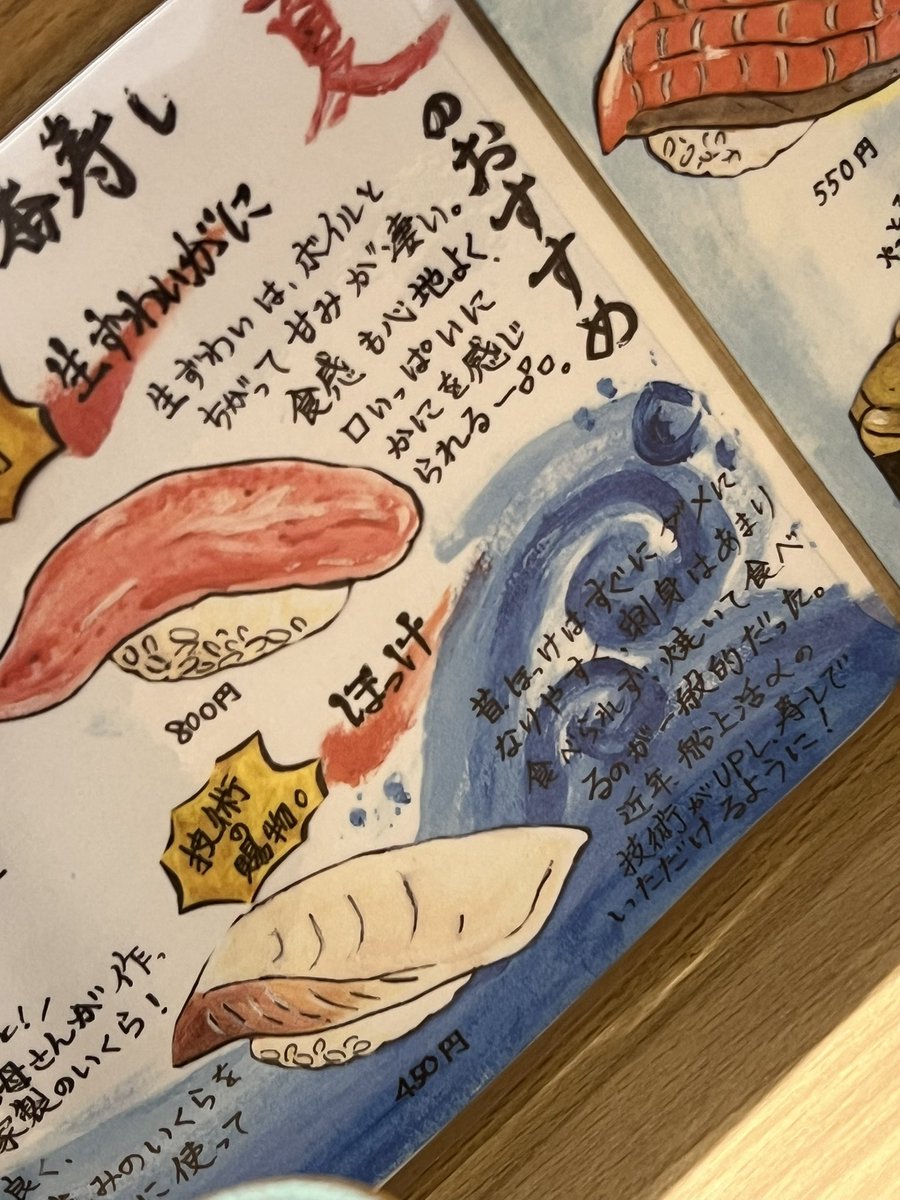 夏
のおすすめ
寿し
生ずわいがに
生ずわいは、ボイルと
ちがって甘みが凄い。
食感も心地よく、
口いっぱいに
かにを感じ
られる一品。
800円
ほっけ
技術
の
賜物。
昔ほっけはすぐにダメに
なりやすく、刺身はあまり
食べられず、焼いて食べ
るのが一般的だった。
近年船上活〆の
技術がUPし、寿しで
いただけるように!
450円
550円
母さんが作っ
家製のいくら!
良く、
みのいくらを
に使って